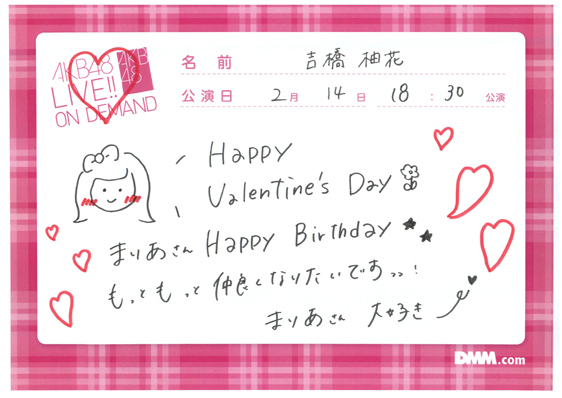 AKB48
LIVE!!
ON DEMAND
AKB
48
名前 吉橋 柚花
公演日 2月 14日 18:30 公演
Happy
Valentine's Day
まりあさん Happy Birthday
もっともっと仲良くなりたいですっっ!
まりあさん 大好き
DMM.com